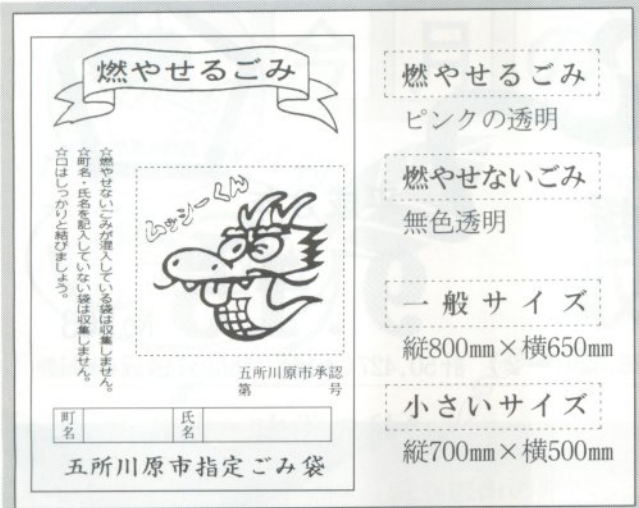 燃やせるごみ
☆燃やせないごみが混入している袋は収集しません。
☆町名・氏名を記入していない袋は収集しません。
☆口はしっかりと結びましょう。
ムッシーくん
五所川原市承認
第 号
町名
氏名
五所川原市指定ごみ袋
燃やせるごみ
ピンクの透明
燃やせないごみ
無色透明
一般サイズ
縦800mm×横650mm
小さいサイズ
縦700mm×横500mm